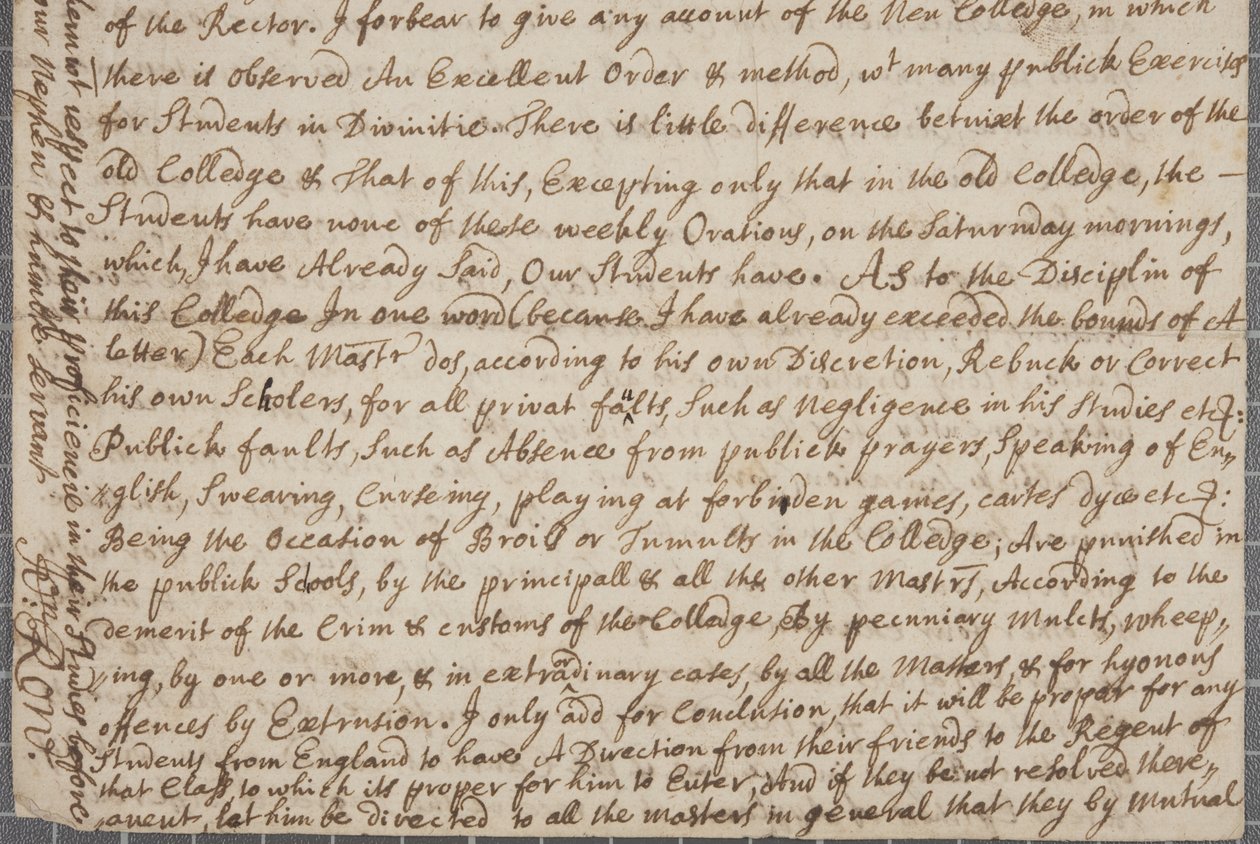 of the Rector. I forbear to give any account of the New Colledge, in which
there is observed An Excellent Order & method, wt many publick Exercises
for Students in Divinitie. There is little difference betwixt the order of the
old Colledge & That of this, Excepting only that in the old Colledge, the —
Students have none of these weekly Orations, on the Saturnday mornings,
which, I have Already Said, Our Students have. As to the Disciplin of
this Colledge In one word (because I have already exceeded the bounds of A
letter) Each Mastr dos, according to his own Discretion, Rebuck or Correct
his own Scholers, for all privat faults, Such as Negligence in his Studies etc:
Publick faults, Such as Absence from publick prayers, Speaking of En„
„glish, Swearing, Curseing, playing at forbiden games, cartes dyce etc:
Being the Occasion of Broils or Tumults in the Colledge; Are punished in
the publick Scools, by the principall & all the other Mastrs, According to the
demerit of the Crim & customs of the Colledge, By pecuniary Mulcts, wheep„
„ing, by one or more, & in extraordinary cases, by all the Masters, & for hyonous
offences by Extrusion. I only add for Conclution, that it will be propper for any
Students from England to have A Direction from their friends to the Regent of
that Class to which its proper for him to Enter, And if they be not resolved there„
„anent, let him be directed to all the masters in general that they by Mutual
wt respect to thair proficiencie in their Studies before
our Nephew & humble Servant
Jon: Ronr.